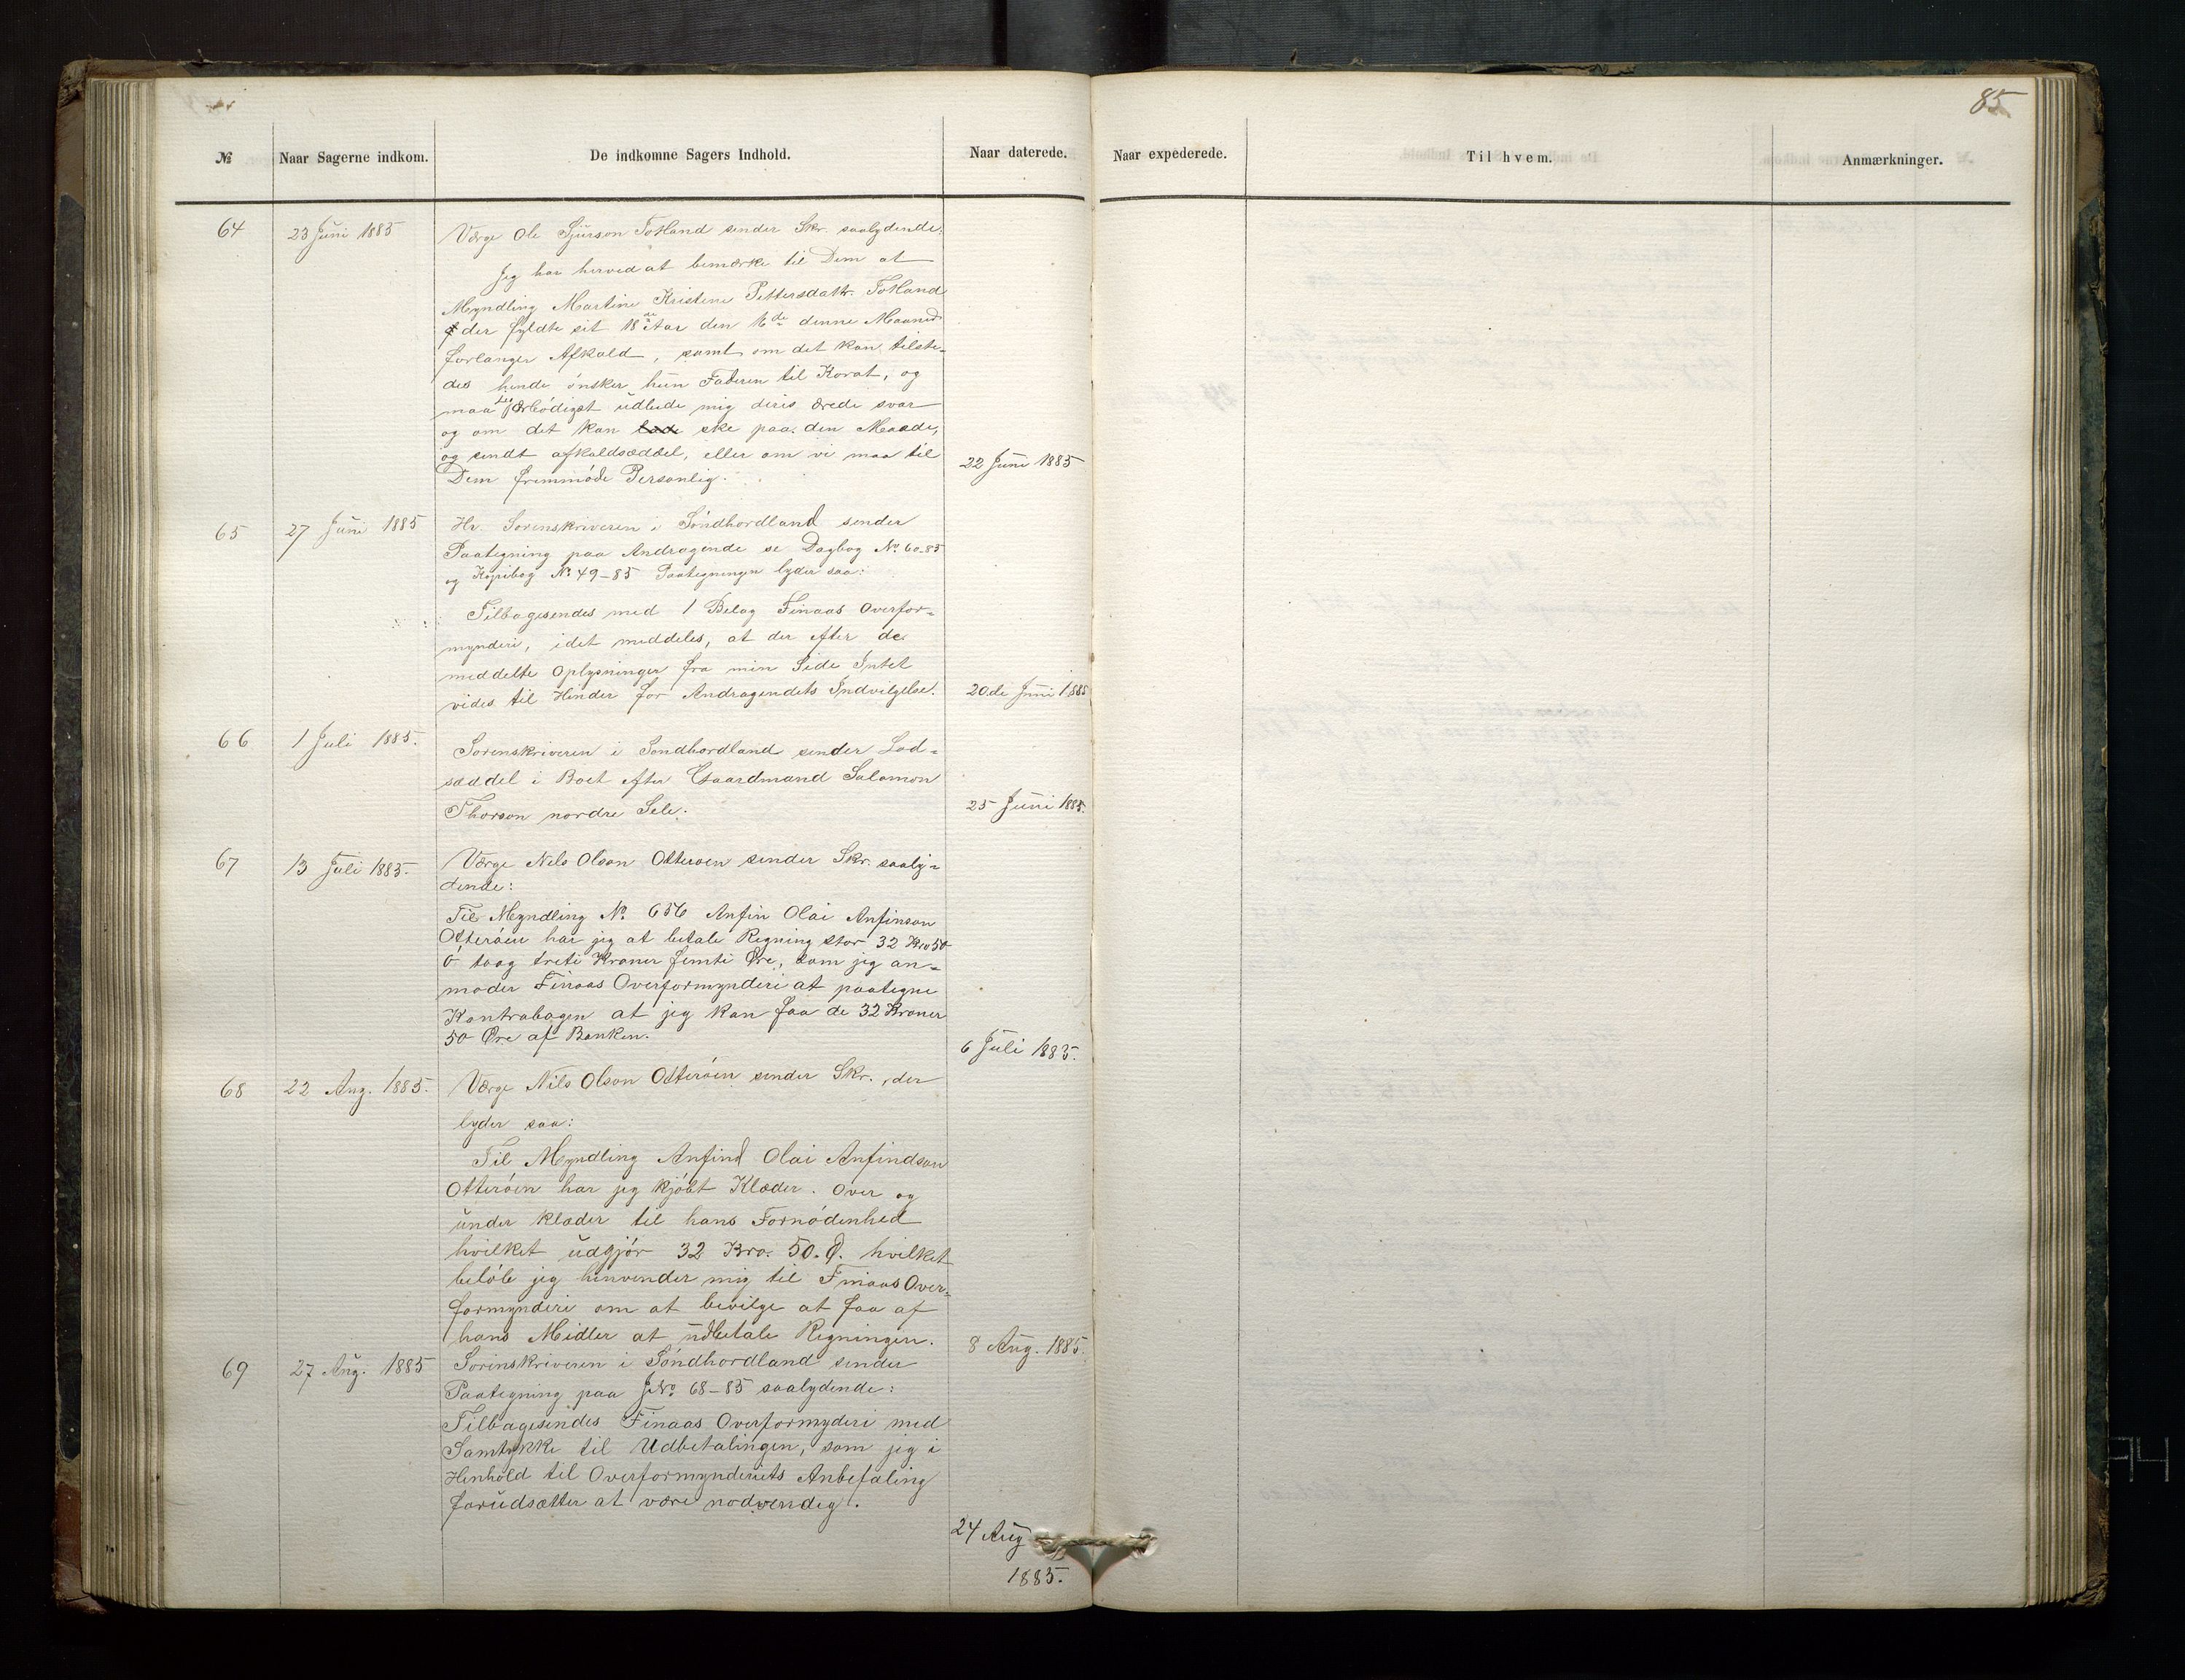 85
№ Naar Sagerne indkom. De indkomne Sagers Indhold. Naar daterede. Naar expederede. Til hvem. Anmærkninger.
64 23 Juni 1885 Værge Ole Sjurson Totland sender Skr. saalydende:
Jeg har herved at bemærke til Dem at
Myndling Martine Kristene Pettersdattr. Totland
der fyldte sit 18de Aar den 16de denne Maaned
forlanger Afkald, samt om det kan tilste-
des hende ønsker hun Faderen til Korat, og
maa ærbødigst udbede mig deris ærede svar
og om det kan ske paa den Maade,
og sendt afkaldsæddel, eller om vi maa til
Dem fremmøde Personlig. 22 Juni 1885
65 27 Juni 1885 Hr. Sorenskriveren i Søndhordland sender
Paategning paa Andragende se Dagbog No. 60-85
og Kopibog No. 49-85 Paategningen lyder saa:
Tilbagesendes med 1 Belag Finaas Overfor-
mynderi, idet meddeles, at der efter de
meddelte Oplysninger fra min Side Intet
vides til Hinder for Andragendets Indvilgelse. 20.de Juni 1885
66 1 Juli 1885. Sorenskriveren i Søndhordland sender Lod-
sæddel i Boet efter Gaardmand Salamon
Thorson nordre Sele. 25 Juni 1885.
67 13 Juli 1885. Værge Nels Olson Otterøen sender Skr. saaly-
dende:
Til Myndling No. 656 Anfin Olai Anfinson
Otterøen har jeg at betale Regning stor 32 Kro 50
ø toog treti Kroner femti Øre, som jeg an-
moder Finaas Overformynderi at paategne
Kontrabogen at jeg kan faa de 32 Kroner
50 Øre af Banken. 6 Juli 1885.
68 22 Aug. 1885. Værge Nils Olson Otterøen sender Skr., der
lyder saa:
Til Myndling Anfind Olai Anfindson
Otterøen har jeg kjøbt Klæder. Over og
under klæder til hans Fornødenhed
hvilket udgjør 32 Kro. 50. Ø. hvilket
beløb jeg henvender mig til Finaas Over-
formynderi om at bevilge at faa af
hans Midler at udbetale Regningen. 8 Aug. 1885.
69 27 Aug. 1885 Sorinskriveren i Søndhordland sender
Paategning paa J.No. 68-85 saalydende:
Tilbagesendes Finaas Overformyderi med
Samtykke til Udbetalingen, som jeg i
Henhold til Overformynderiets Anbefaling
forudsætter at være nodvendig.
24 Aug
1885.